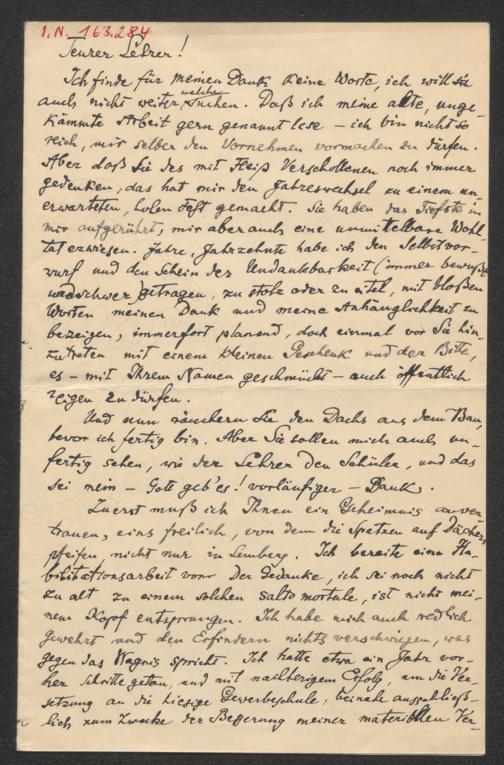 I.N. 163.284
Teurer Lehrer!
Ich finde für meinen Dank keine Worte, ich will sie
auch nicht weiter suchen. Daß ich meine alte, unge-
welche
kämmte Arbeit gern genannt lese – ich bin nicht so
reich, mir selber den Vornehmen vormachen zu dürfen.
Aber daß Sie des mit Fleiß Verschollenen noch immer
gedenken, das hat mir den Jahreswechsel zu einem un-
erwarteten, hohen Fest gemacht. Sie haben das Tiefste in
mir aufgerührt, mir aber auch eine unmittelbare Wohl-
tat erwiesen. Jahre, Jahrzehnte habe ich den Selbstvor-
wurf und den Schein der Undankbarkeit (immer bewußt
und schwer) getragen, zu stolz oder zu eitel, mit bloßen
Worten meinen Dank und meine Anhänglichkeit zu
bezeigen, immerfort planend, doch einmal vor Sie hin-
zutreten mit einem kleinen Geschenk und der Bitte,
es – mit Ihrem Namen geschmückt – auch öffentlich
zeigen zu dürfen.
Und nun räuchern Sie den Dachs aus dem Bau,
bevor ich fertig bin. Aber Sie sollen mich auch un-
fertig sehen, wie der Lehrer den Schüler, und das
sei mein – Gott geb'es! vorläufiger – Dank.
Zuerst muß ich Ihnen ein Geheimnis anver-
trauen, eins freilich, von dem die Spatzen auf Dächern
pfeifen nicht nur in Lemberg. Ich bereite eine Ha-
bilitationsarbeit vor. Der Gedanke, ich sei noch nicht
zu alt zu einem solchen salto mortale, ist nicht mei-
nem Kopf entsprungen. Ich habe mich auch redlich
gewehrt und den Erfindern nichts verschwiegen, was
gegen das Wagnis spricht. Ich hatte etwa ein Jahr vor-
her Schritte getan, und mit nachherigem Erfolg, um die Ver-
setzung an die hiesige Gewerbeschule, beinahe ausschließ-
lich zum Zwecke der Besserung meiner materiellen Ver-